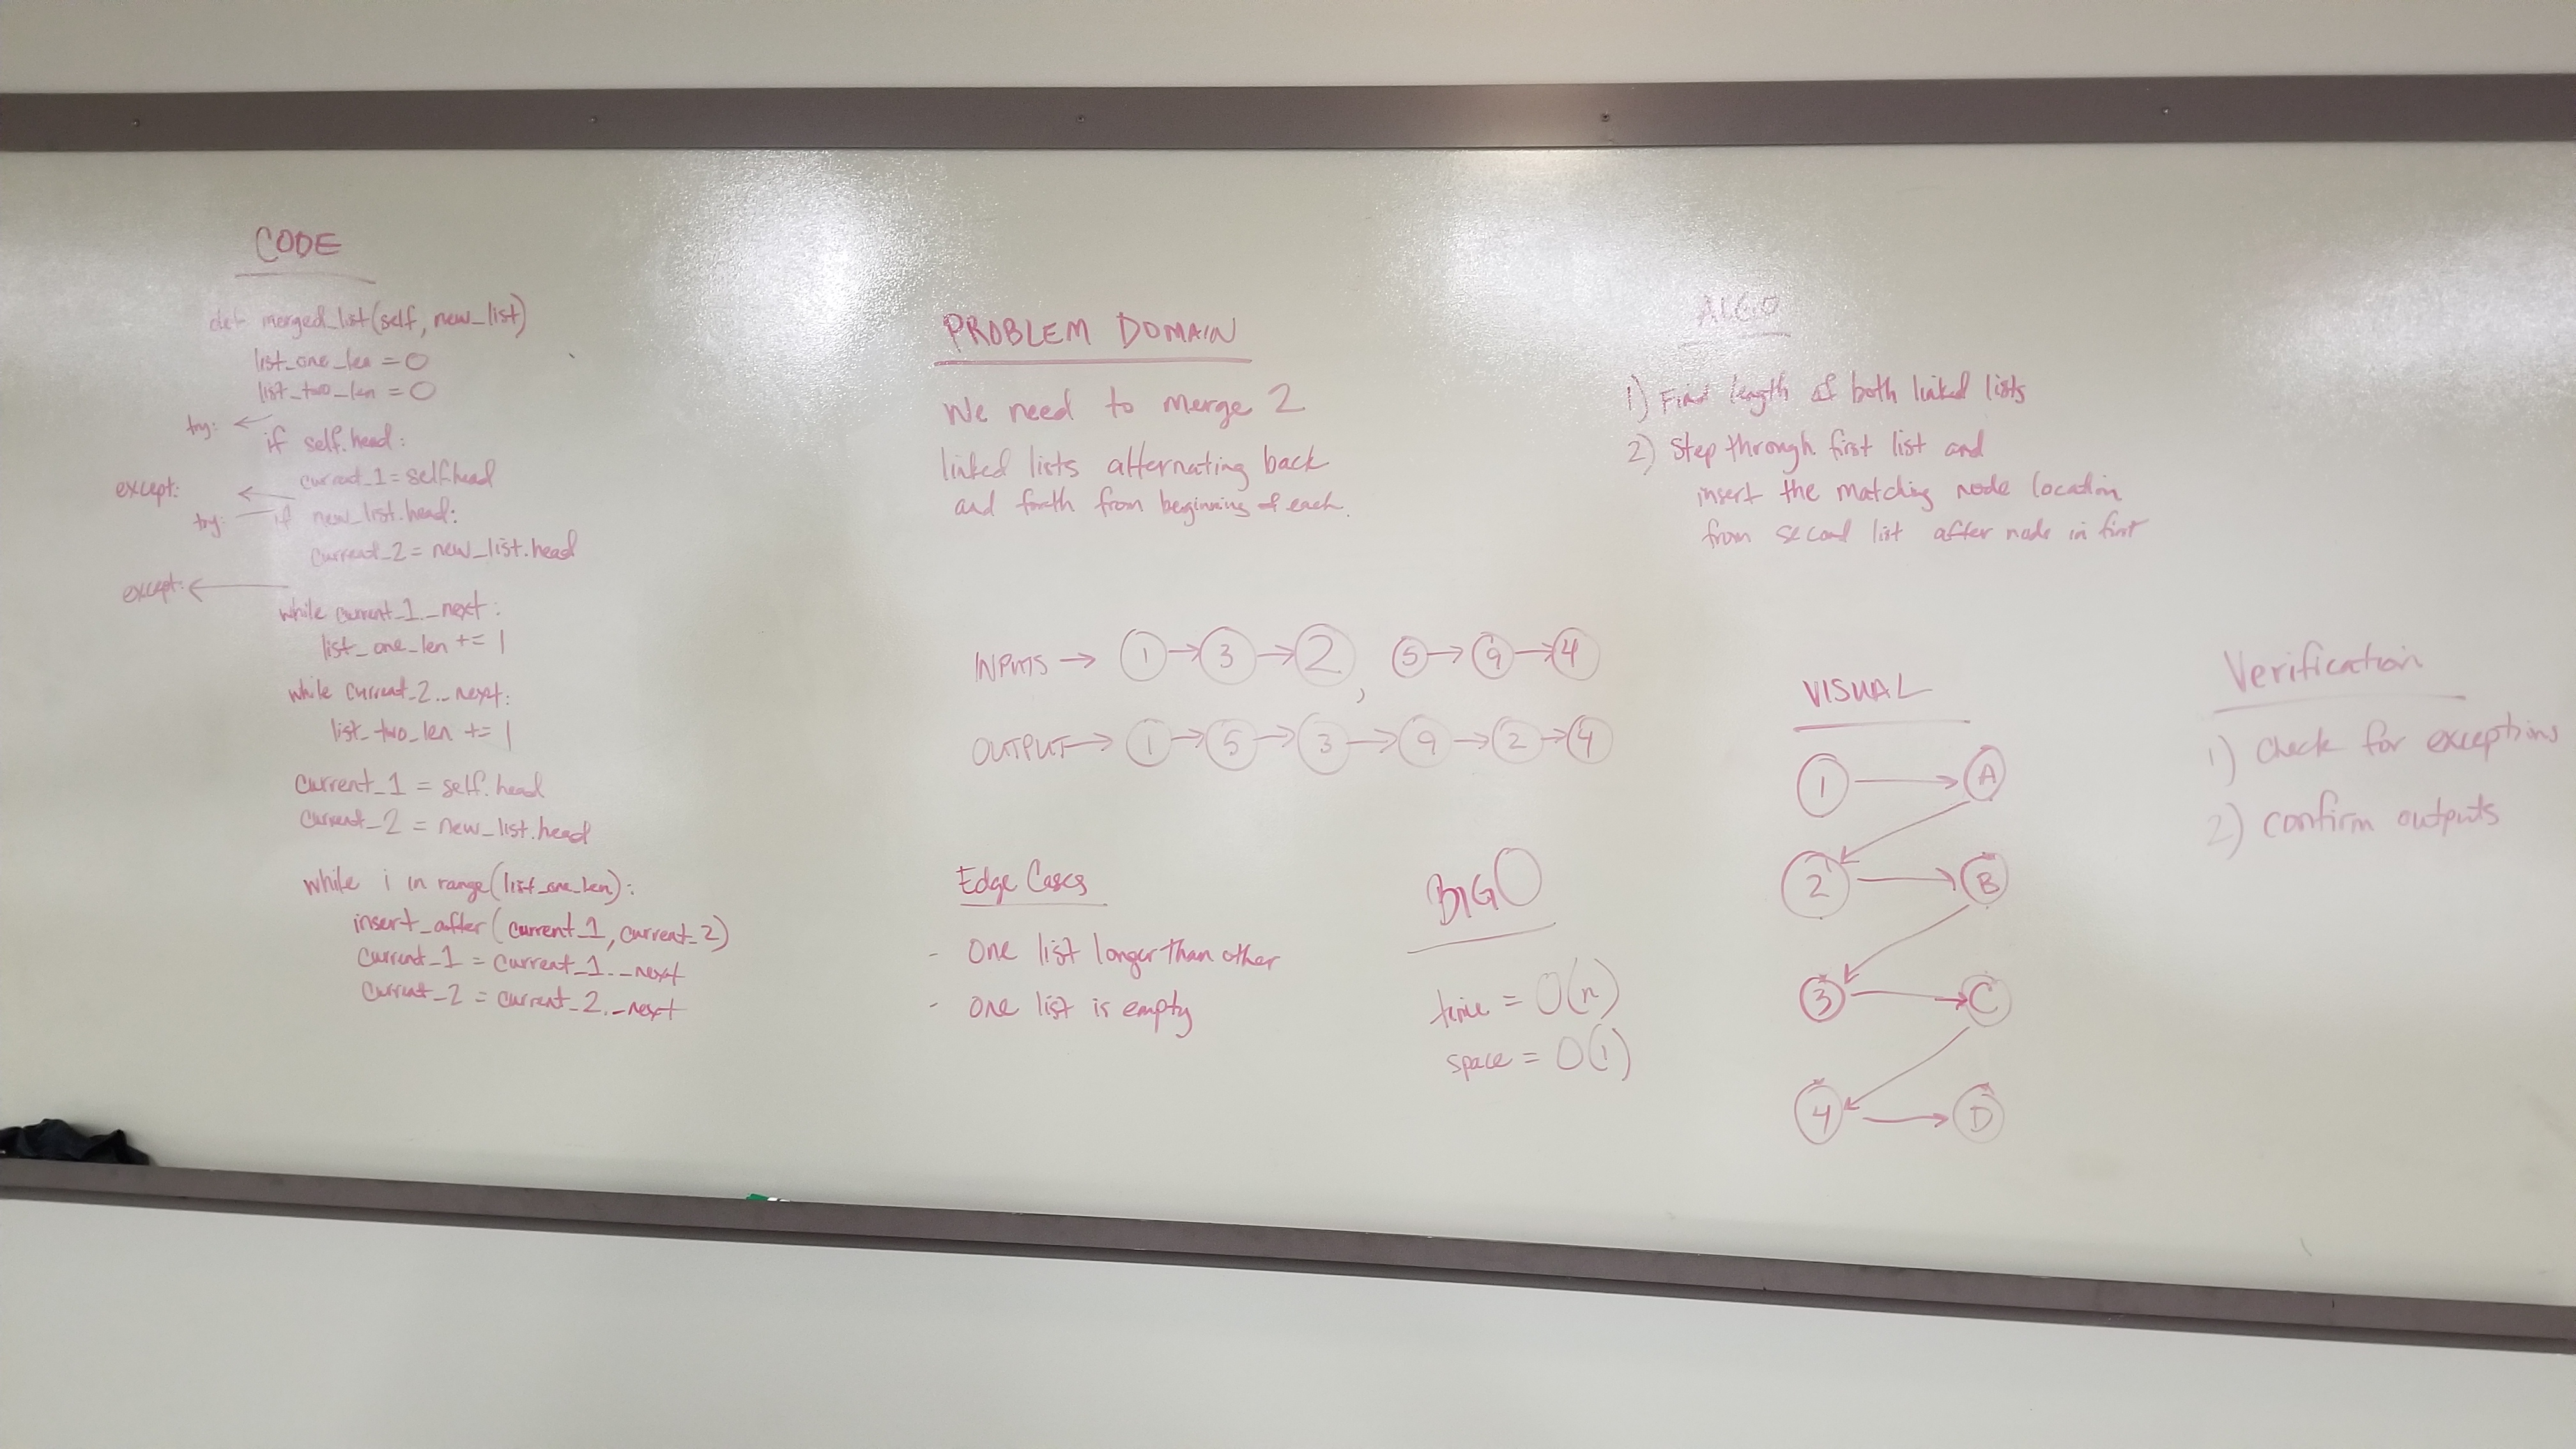 CODE
def merged_list(self, new_list)
list_one_len = 0
list_two_len = 0
try: ←
if self.head:
current_1 = self.head
except: ←
try: if new_list.head:
current_2 = new_list.head
except: ←
while current_1._next:
list_one_len += 1
while current_2._next:
list_two_len += 1
current_1 = self.head
current_2 = new_list.head
while i in range(list_one_len):
insert_after(current_1, current_2)
current_1 = current_1._next
current_2 = current_2._next
PROBLEM DOMAIN
We need to merge 2
linked lists alternating back
and forth from beginning of each.
INPUTS → 1 → 3 → 2, 5 → 9 → 4
OUTPUT → 1 → 5 → 3 → 9 → 2 → 4
Edge Cases
- One list longer than other
- One list is empty
BIG O
time = O(n)
space = O(1)
ALGO
1) Find length of both linked lists
2) Step through first list and
insert the matching node location
from second list after node in first
VISUAL
1 → A
2 → B
3 → C
4 → D
Verification
1) Check for exceptions
2) confirm outputs